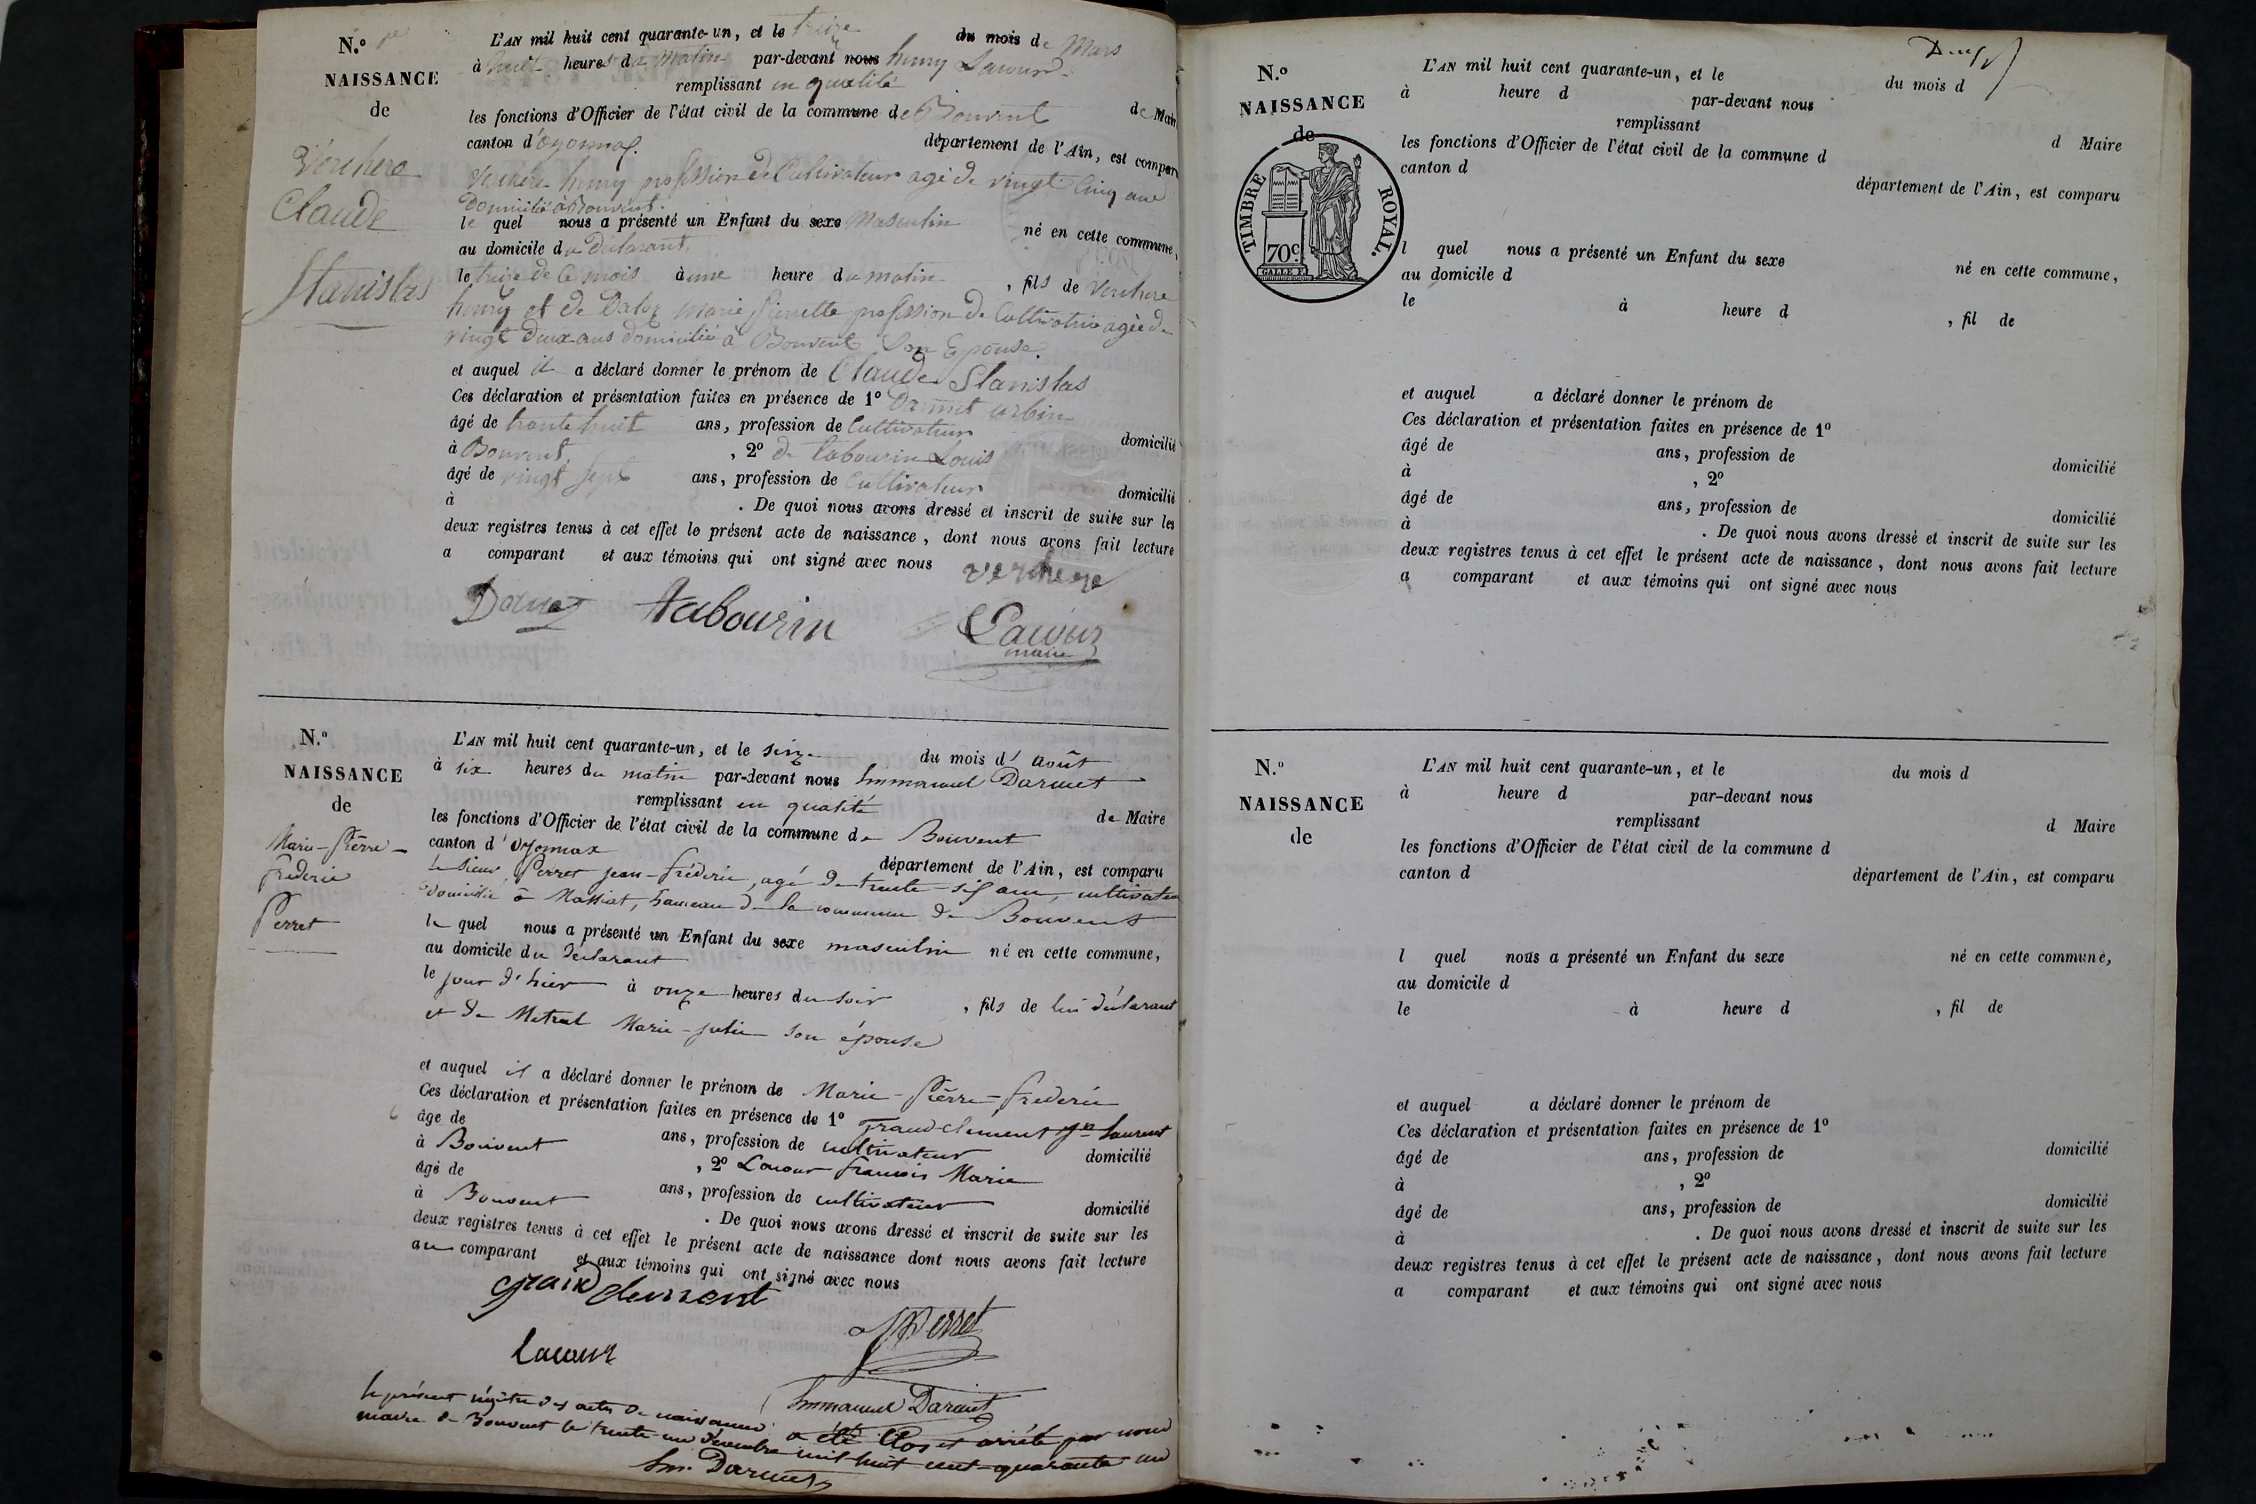 N.º
NAISSANCE
de
Verchere
Claude
Stanislas
L'AN mil huit cent quarante-un, et le treize du mois de Mars
à huit heures du matin par-devant nous henry Lacour
remplissant en qualité de Maire
les fonctions d'Officier de l'état civil de la commune de Bouvent
canton d'oyonnax département de l'Ain, est comparu
Verchere henry profession de Cultivateur agé de vingt Cinq ans
Domicilié à Bouvent
le quel nous a présenté un Enfant du sexe Masculin né en cette commune,
au domicile du déclarant
le treize de ce mois à une heure du matin, fils de Verchere
henry et de Daloz Marie pierrette profession de Cultivatrice agée de
vingt deux ans domiciliée à Bouvent Son Epouse.
et auquel il a déclaré donner le prénom de Claude Stanislas
Ces déclaration et présentation faites en présence de 1º Darmet urbin
âgé de trente huit ans, profession de Cultivateur domicilié
à Bouvent, 2º de Tabourin Louis
âgé de vingt Sept ans, profession de Cultivateur domicilié
à . De quoi nous avons dressé et inscrit de suite sur les
deux registres tenus à cet effet le présent acte de naissance, dont nous avons fait lecture
a comparant et aux témoins qui ont signé avec nous
verchere
tabourin
Lacour
maire
N.º
NAISSANCE
de
Marie-Pierre-
frederic
Perret
L'AN mil huit cent quarante-un, et le seize du mois d'août
à six heures du matin par-devant nous Emmanuel Darmet
remplissant en qualité de Maire
les fonctions d'Officier de l'état civil de la commune de Bouvent
canton d'Oyonnax département de l'Ain, est comparu
Le Sieur Perret jean-fréderic, agé de trente-six ans, cultivateur
domicilié à Massiat, hameau de la commune de Bouvent
le quel nous a présenté un Enfant du sexe masculin né en cette commune,
au domicile du déclarant
le jour d'hier à onze heures du soir, fils de lui déclarant
et de Metral Marie-julie son épouse
et auquel il a déclaré donner le prénom de Marie-Pierre-frederic
Ces déclaration et présentation faites en présence de 1º Grandclement Laurent
âge de ans, profession de cultivateur domicilié
à Bouvent, 2º Lacour francois Marie
âgé de ans, profession de cultivateur domicilié
à Bouvent . De quoi nous avons dressé et inscrit de suite sur les
deux registres tenus à cet effet le présent acte de naissance dont nous avons fait lecture
au comparant et aux témoins qui ont signé avec nous
grand clement
Perret
Lacour
Emmanuel Darmet
le présent régistre des actes de naissance a été Clos et arrêté par nous
maire de Bouvent le trente-un décembre mil huit cent-quarante un
Em. Darmet
N.º
NAISSANCE
de
TIMBRE ROYAL.
70 c.
L'AN mil huit cent quarante-un, et le du mois d
à heure d par-devant nous
remplissant d Maire
les fonctions d'Officier de l'état civil de la commune d
canton d département de l'Ain, est comparu
l quel nous a présenté un Enfant du sexe né en cette commune,
au domicile d
le à heure d , fil de
et auquel a déclaré donner le prénom de
Ces déclaration et présentation faites en présence de 1º
âgé de ans, profession de domicilié
à , 2º
âgé de ans, profession de domicilié
à . De quoi nous avons dressé et inscrit de suite sur les
deux registres tenus à cet effet le présent acte de naissance, dont nous avons fait lecture
a comparant et aux témoins qui ont signé avec nous
N.º
NAISSANCE
de
L'AN mil huit cent quarante-un, et le du mois d
à heure d par-devant nous
remplissant d Maire
les fonctions d'Officier de l'état civil de la commune d
canton d département de l'Ain, est comparu
l quel nous a présenté un Enfant du sexe né en cette commune,
au domicile d
le à heure d , fil de
et auquel a déclaré donner le prénom de
Ces déclaration et présentation faites en présence de 1º
âgé de ans, profession de domicilié
à , 2º
âgé de ans, profession de domicilié
à . De quoi nous avons dressé et inscrit de suite sur les
deux registres tenus à cet effet le présent acte de naissance, dont nous avons fait lecture
a comparant et aux témoins qui ont signé avec nous